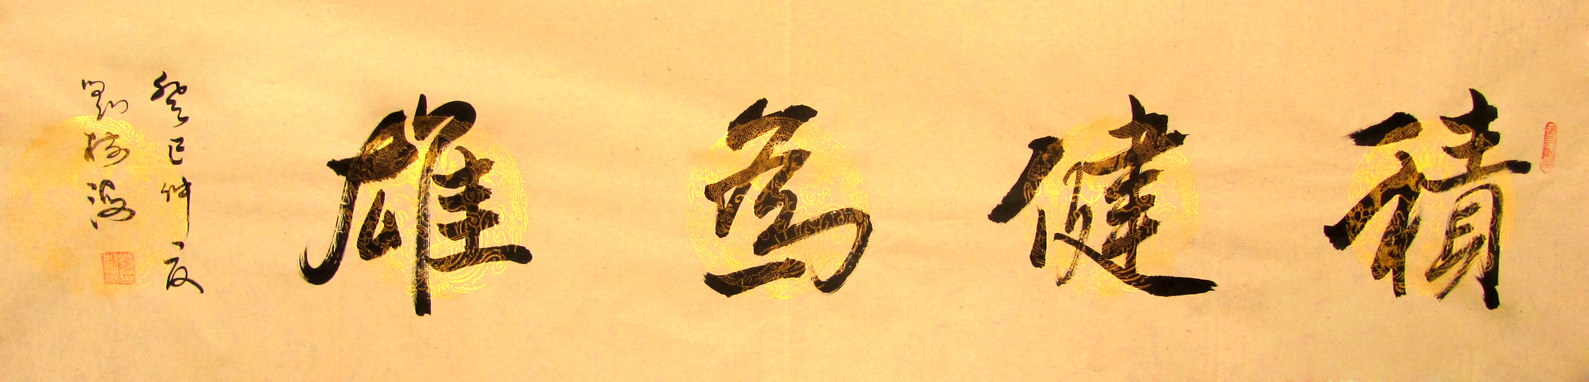 積健為雄
癸巳仲夏
劉樹海